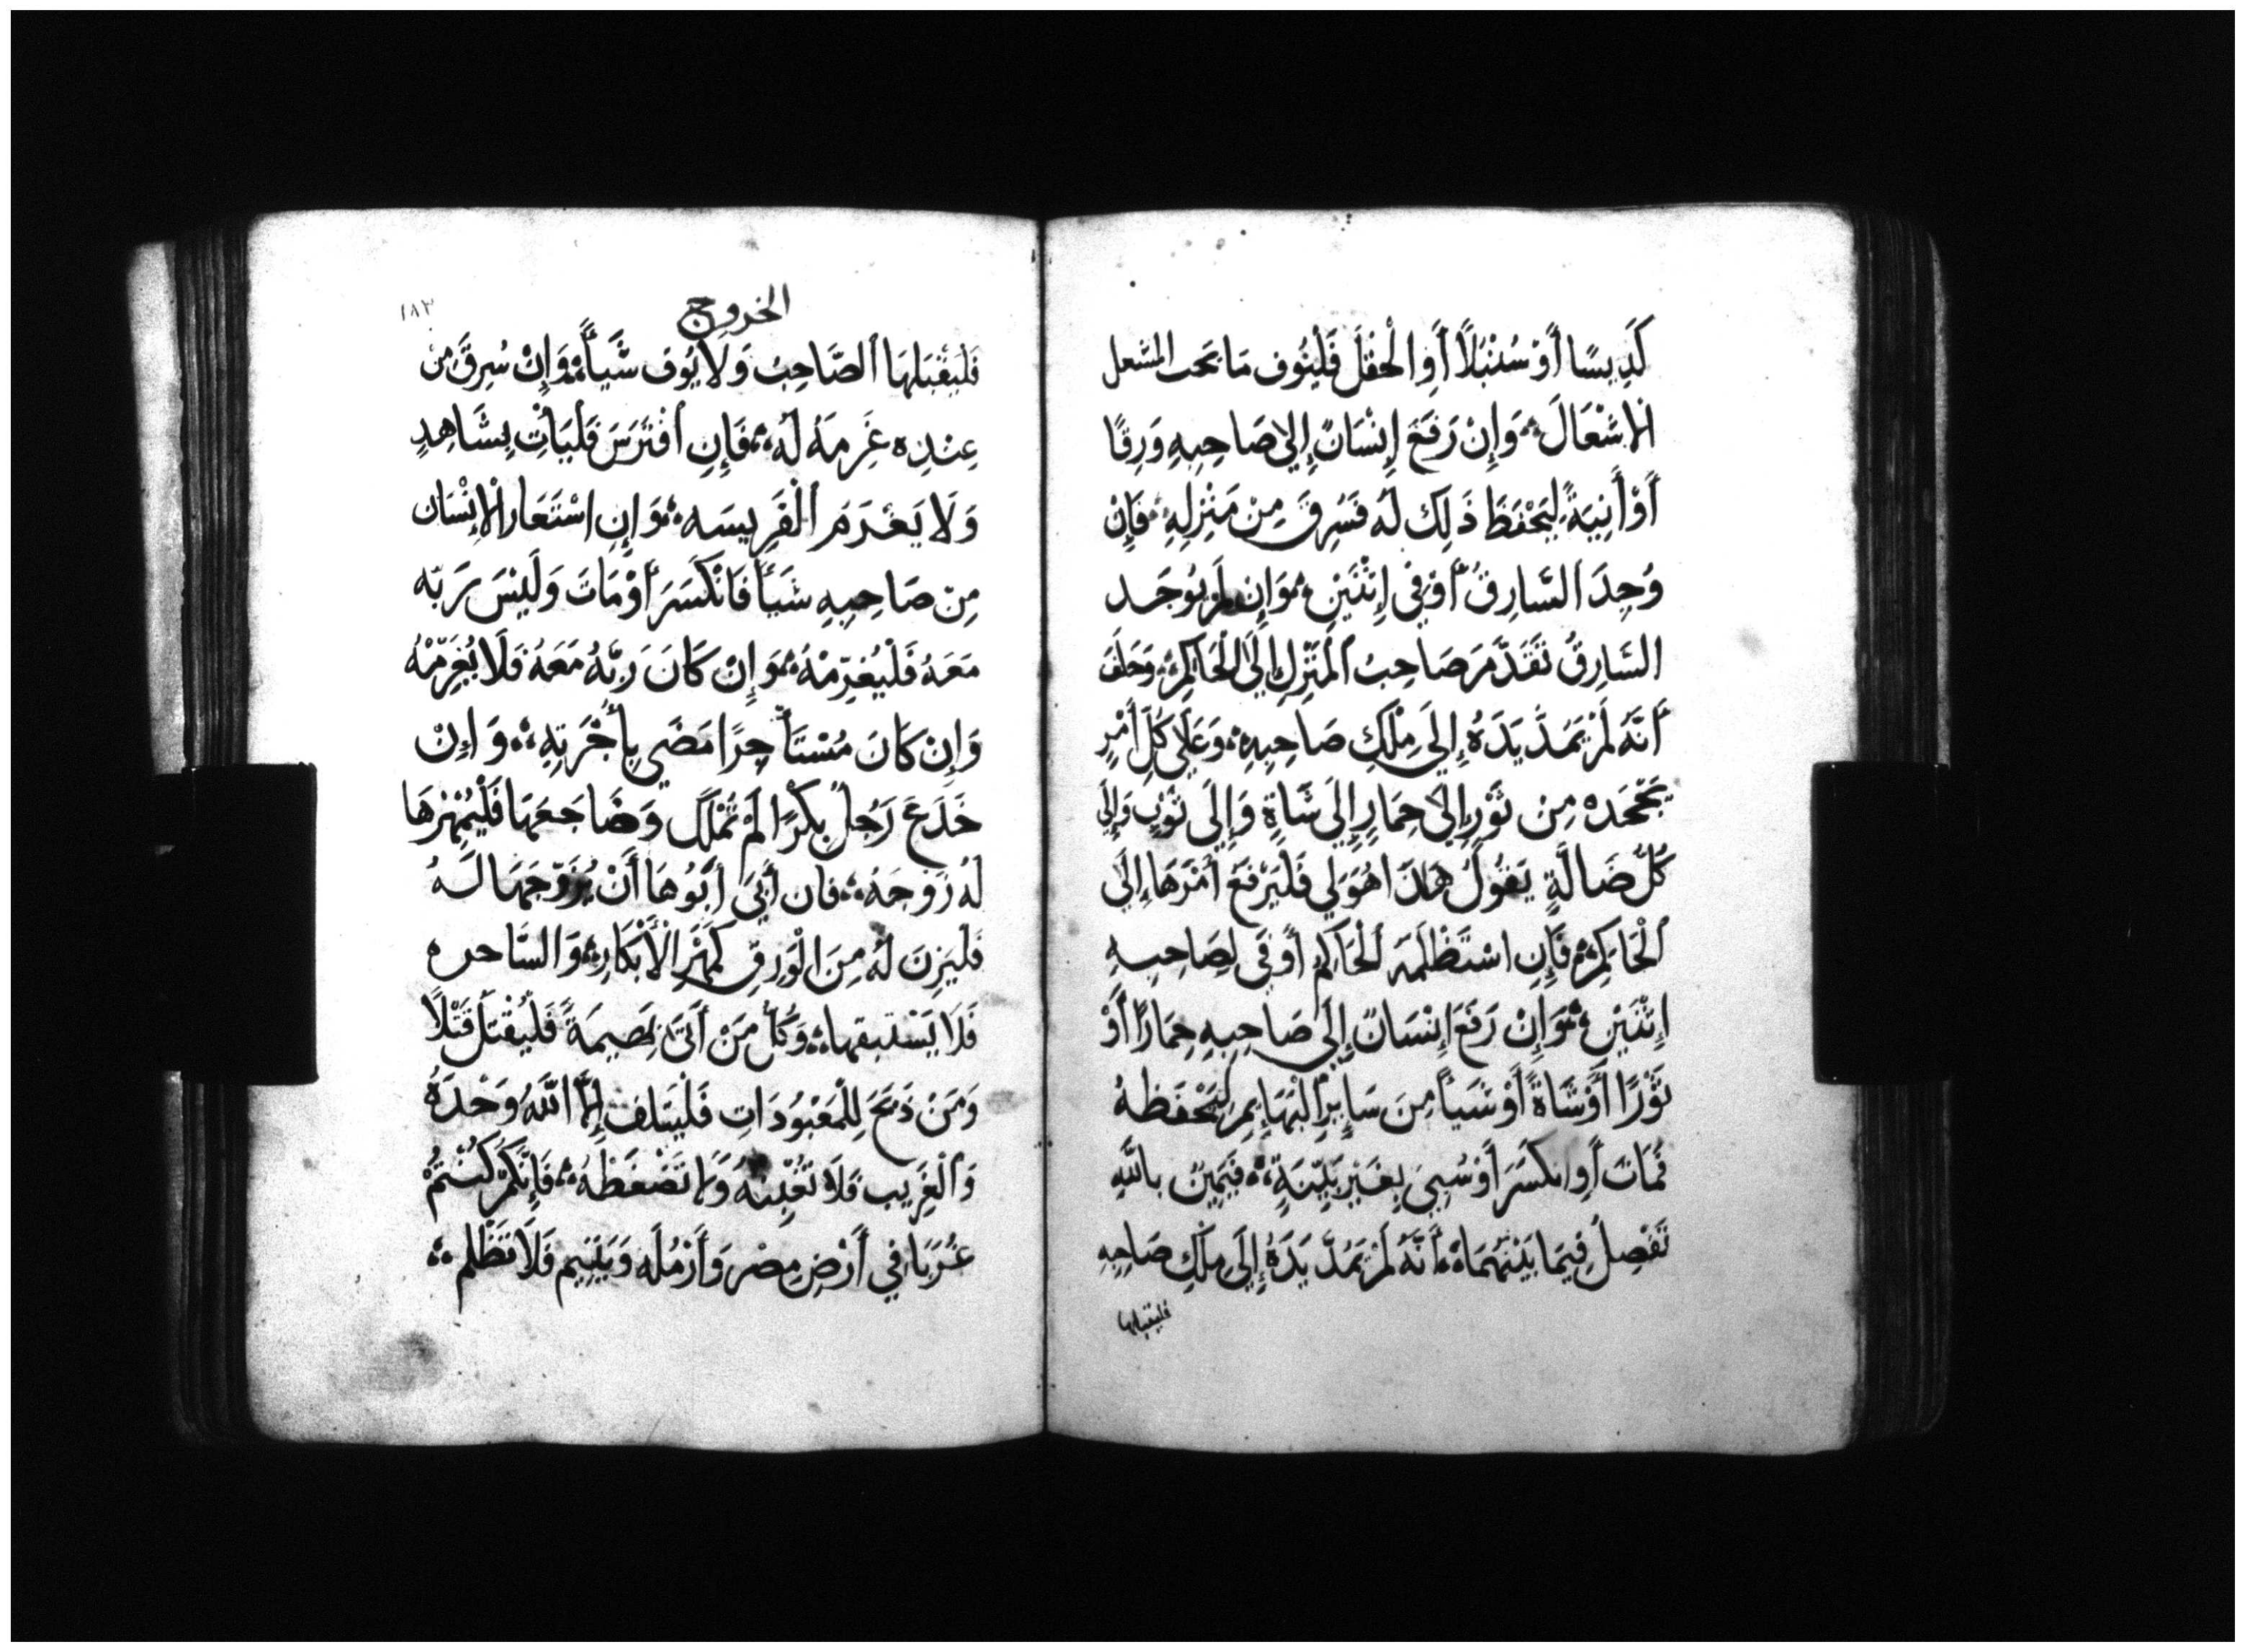 كَدِيسًا أَوْ سُنْبَلًا أَوِ الْحَقْلَ فَلْيُوف مَا تحت المشعل
الإشْعَالَ وَإِنْ رَفَعَ إِنْسَانٌ إِلى صَاحِبِهِ وَرِقًا
أَوْ أَنِيَةً لِيَحْفَظَ ذَلِكَ لَهُ فَسُرِقَ مِنْ مَنْزِلِهِ فَإِنْ
وُجِدَ السَّارِقُ أَوْفِي إِثْنَيْنِ وَإِن لَمْ يُوجَد
السَّارِقُ تَقَدَّمَ صَاحِبُ الْمَنْزِلِ إِلَى الْحَاكِمِ وَحَلَفَ
أَنَّهُ لَمْ يَمُدَّ يَدَهُ إِلَى مِلْكِ صَاحِبِهِ وَعَلَى كُلِّ أَمْرٍ
يَجْحَدَه مِن ثَوْرٍ إِلى حِمَارٍ إِلَى شَاةٍ وَإِلَى ثَوْبٍ وَإِلَى
كُلِّ ضَالَّةٍ يَقُولُ هَذَا هُوَ لِي فَلْيَرْفَعْ أَمْرَهَا إِلَى
الْحَاكِمِ فَإِنِ اسْتَظْلَمَهُ الْحَاكِمُ أَوْفَى لِصَاحِبِهِ
إِثْنَيْنِ وَإِنْ رَفَعَ إِنْسَانٌ إِلَى صَاحِبِهِ حِمَارًا أَوْ
ثَوْرًا أَوْ شَاةً أَوْ شَيأً مِنَ سَايِرِ الْبَهَايِمِ لِيَحْفَظهُ
فَمَاتَ أَوِ انكَسَرَ أَوْ سُبِيَ بِغَيْرِ بَيِّنَةٍ فَيَمِينٌ بِاللَّهِ
تَفْصِلُ فِيمَا بَيْنَهُمَا أَنَّهُ لَمْ يَمُدَّ يَدَهُ إِلَى مِلْكِ صَاحِبِهِ
فليقبلها
الخروج
١٨٣
فَلْيَقْبَلهَا الصَّاحِبُ وَلَا يُوَف شَيأً وَإِنْ سُرِقَ مِنْ
عِنْدِه غَرِمَهُ لَهُ فَإِنِ افْتَرَسَ فَلْيَأْتِ بِشَاهِدٍ
وَلَا يَغْرَمَ الْفَرِيسَه وَإِنِ اسْتَعَارَ الْإِنْسَان
مِن صَاحِبِهِ شَيَأً فَانْكَسَرَ أَوْ مَاتَ وَلَيْسَ رَبّه
مَعَهُ فَلْيُغَرِّمْهُ وَإِنْ كَانَ رَبُّهُ مَعَهُ فَلَا يُغَرِّمْهُ
وَإِنْ كَانَ مُسْتَأجِرًا مَضَي بِأُجْرَتِهِ وَإِنْ
خَدَعَ رَجُلٌ بِكْرًا لَمْ تُمْلَك وَضَاجَعَهَا فَلْيُمْهِرْهَا
لَهُ زَوْجَهُ فَان أَبَى أَبُوهَا أَنْ يُزَوِّجَهَا لَهُ
فَلْيَزِنَ لَهُ مِنَ الْوَرِقِ كَمَهْرِ الْأَبْكَارِ وَالسَّاحره
فَلَا يَسْتبقها وَكُلُّ مَنْ أَتَى بَهِيمَةً فَلْيُقْتَلُ قَتْلًا
وَمَنْ ذَبَحَ لِلْمَعْبُودَاتِ فَلْيتلف إِلَّا اللَّهُ وَحْدَهُ
وَالْغَرِيب فَلَا تَغْبِنهُ وَلا تَضْغَطْهُ فَإِنَّكُمْ كُنْتُمْ
غُرَبَا فِي أَرْضِ مِصْرَ وَأَرْمُلَه وَيَتِيم فَلَا تَظْلم